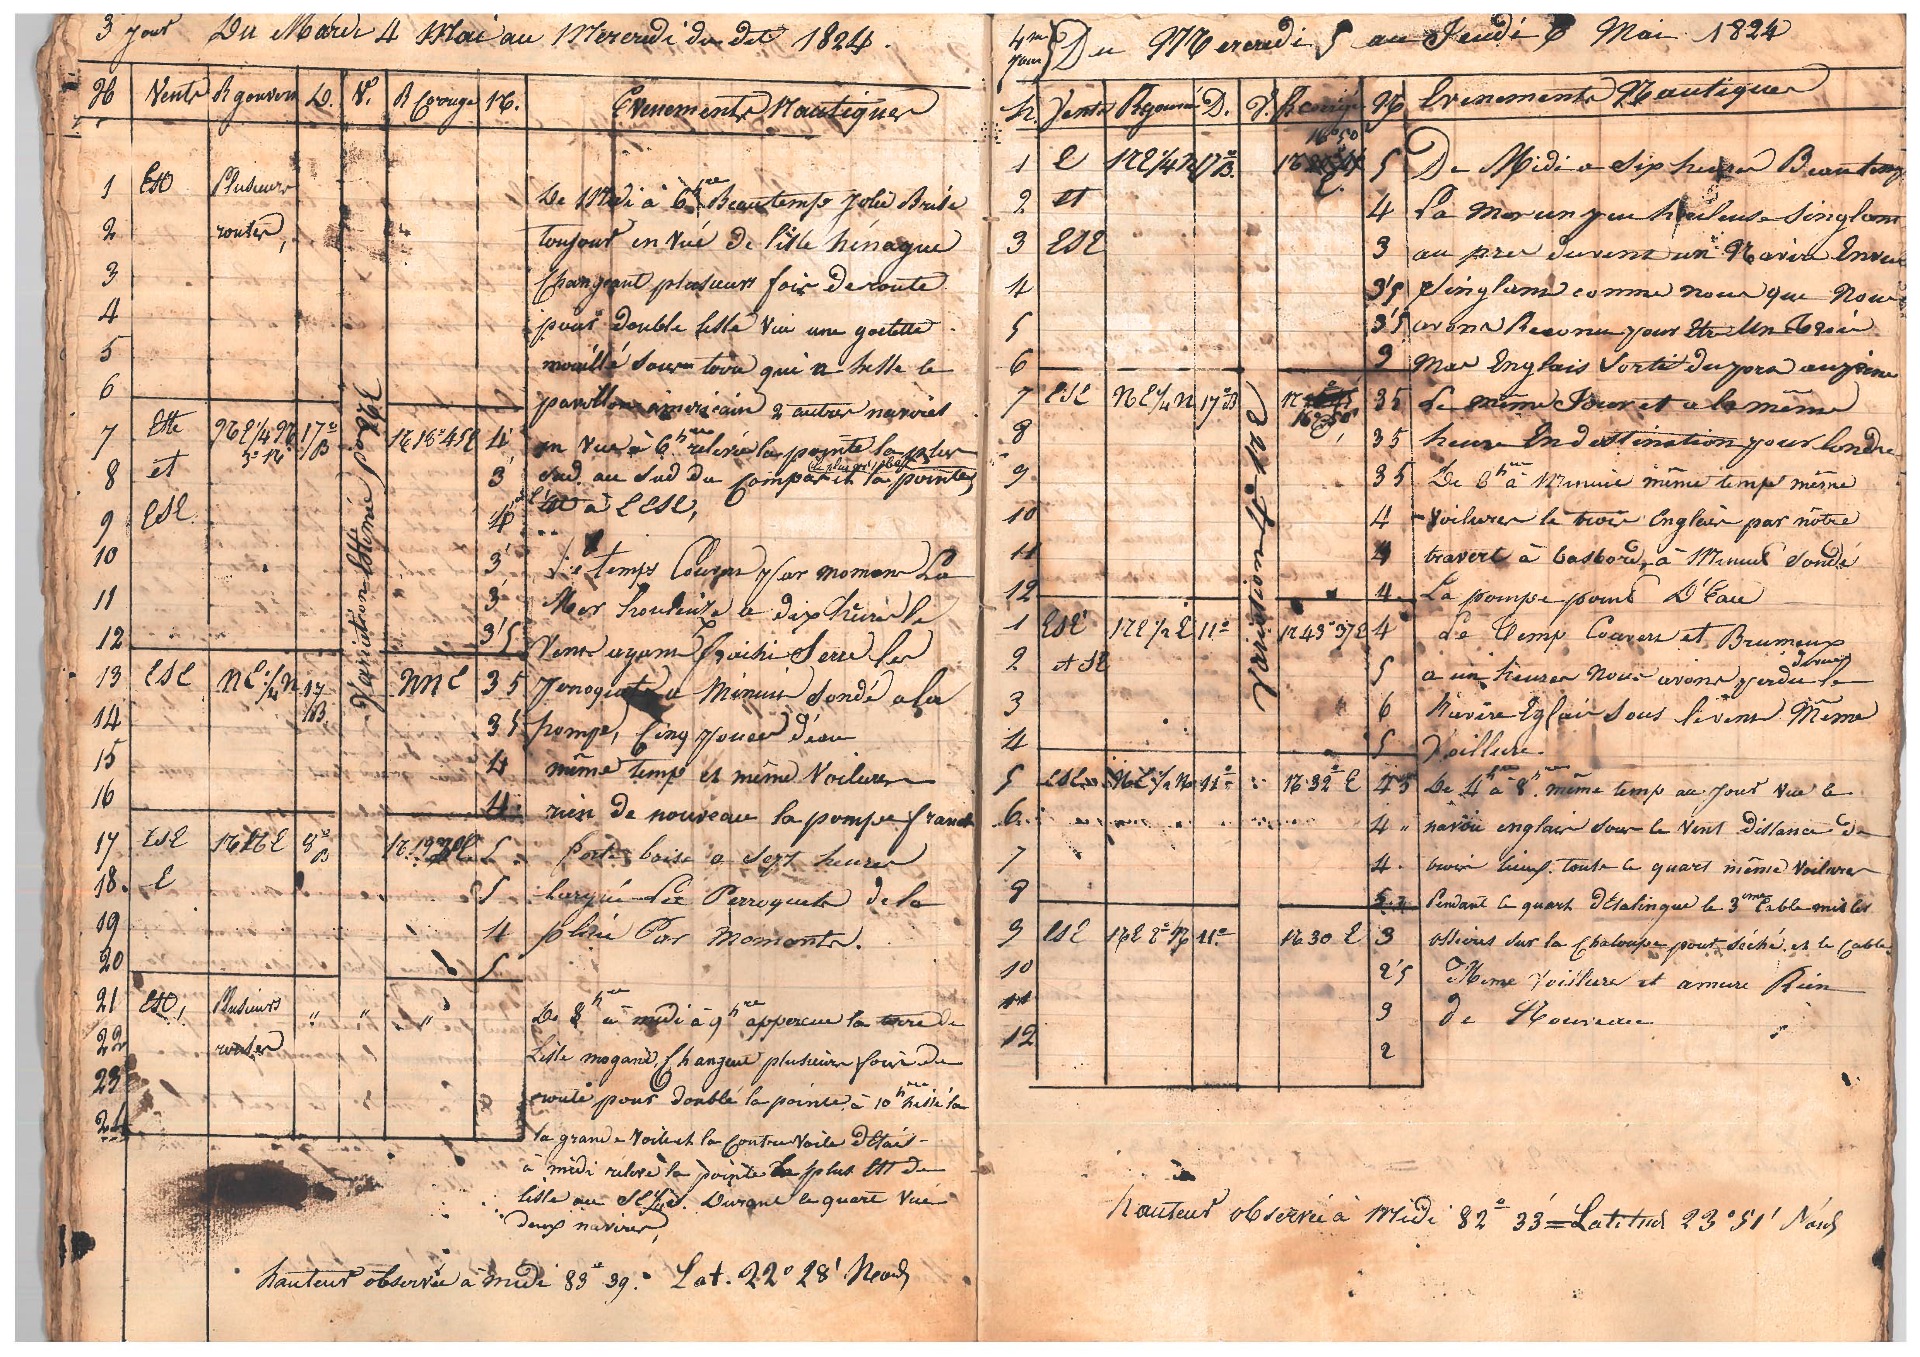 3 jour Du Mardi 4 Mai au Mercredi du dit 1824.
H Vents R gouvern D. V. R Corrigé N. Evenements Nautiques
1 Est Plusieurs
2 routes,
3
4
5
6
7 Este NE 1/4 N 17° B N 18° 45 E 4
3° N
8 et 3
9 ESE 4
10 3
11 3
12 3'5
13 ESE NE 1/4 N 17 B NNE 3 5
14 3 5
15 4
16 4
17 ESE NNE 8° B
18. E 5
19 4
20 5
21 Est, Plusieurs " " "
22 routes
23
24
Variation estimé
De Midi à 6 hre Beautemps jolie Brise
toujours en Vue de l'isle hénague
Changeant plusieurs fois de route
pour double l'isle Vue une goelette
mouillé sous qui a hisse le
pavillon américain 2 autres navires
en Vue à 6 hre relevé la pointe la plus
Sud. au Sud du Compas et la pointe
la plus
Est à l'ESE,
Le temps Couvert par moment La
Mer houleuse a dix heure le
Vent ayant fraichi Serre les
a Minuit Sondé a la
pompe, Cinq pouces d'eau
même temp et même Voilures
rien de nouveau la pompe franche
forte boise a Sept heures
largué Les Perroquets de la
pluie Par moments.
De 8 hre à midi à 9 hre appercue la terre de
Lisle mogane, Changeur plusieurs fois de
route pour doublé la pointe, à 10 hre hissé la
la grande Voile et la Contre Voile d'Etais
à midi relevé la pointe la plus Est de
lisle au SE 1/4 S. Durant le quart Vue
deux navires,
hauteur observée à midi 83° 39. Lat. 22° 28' Nord
4me jour Du Mercredi 5 au Jeudi 6 Mai 1824
h. Vents R gouver D. V. R Corrigé N Evenements Nautiques
16° 50
1 E NE 1/4 N 17° B. 5
2 et 4
3 ESE 3
4 3'5
5 3'5
6 3
7 ESE NE 1/4 N 17° B 3 5
16° 50'
8 3 5
9 3 5
10 4
11 4
12 4
1 ESE NE 1/2 E 11° N 43° 37 E 4
2 et SE 5
3 6
4 5
5 ESE NE 1/2 N 11° N 32° E 4 5
6 4
7 4
8 5
9 ESE NE 2° N 11° N 30 E 3
10 2'5
11 3
12 2
Variation
De Midi a Six heures Beautemp
La Mer un peu houleuse Singlant
au pres un Navire En vue
Singlant comme nous que Nous
avons Reconu pour Etre Un Trois
Mas Englais Sortie du port auprince
Le même Jour et a la même
heure En destination pour Londre
De 6 hre à Minuit même temp même
Voilures le trois Englais par nôtre
travert à basbord, à Minuit Sondé
La pompe point D'Eau
Le Temp Couvert et Brumeux
a un heures Nous avons perdu le
Navire Eglais Sous le vent Même
Voillure.
De 4 hre à 8 hre même temp au jour vue le
navire englais sous le vent distance de
trois lieux. toute le quart même Voilures
Pendant le quart d'Etalingue le 3eme Cable mis les
sur la Chaloupe pour séché et le Cable
Même Voillure et amure Rien
de Nouveau
hauteur observée à Midi 82° 33' = Latitud 23° 51' Nord